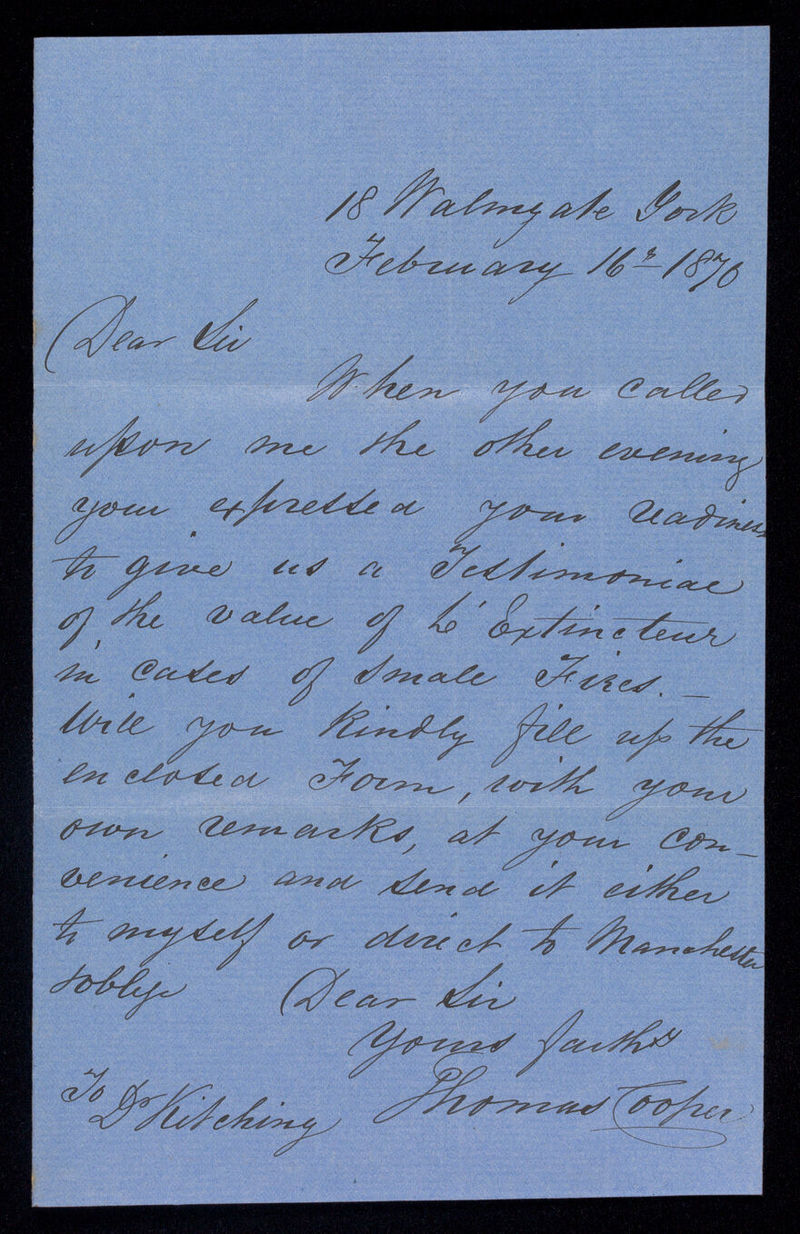 18 Walmgate York
February 16th 1870
Dear Sir
When you called
upon me the other evening
your expressed your readiness
to give us a Testimonial
of the value of L' Extincteur
in cases of small Fires. —
Will you kindly fill up the
enclosed Form, with your
own remarks, at your con-
venience and send it either
to myself or direct to Manchester
& oblige Dear Sir
Yours faithy
Thomas Cooper
To Dr Kitching